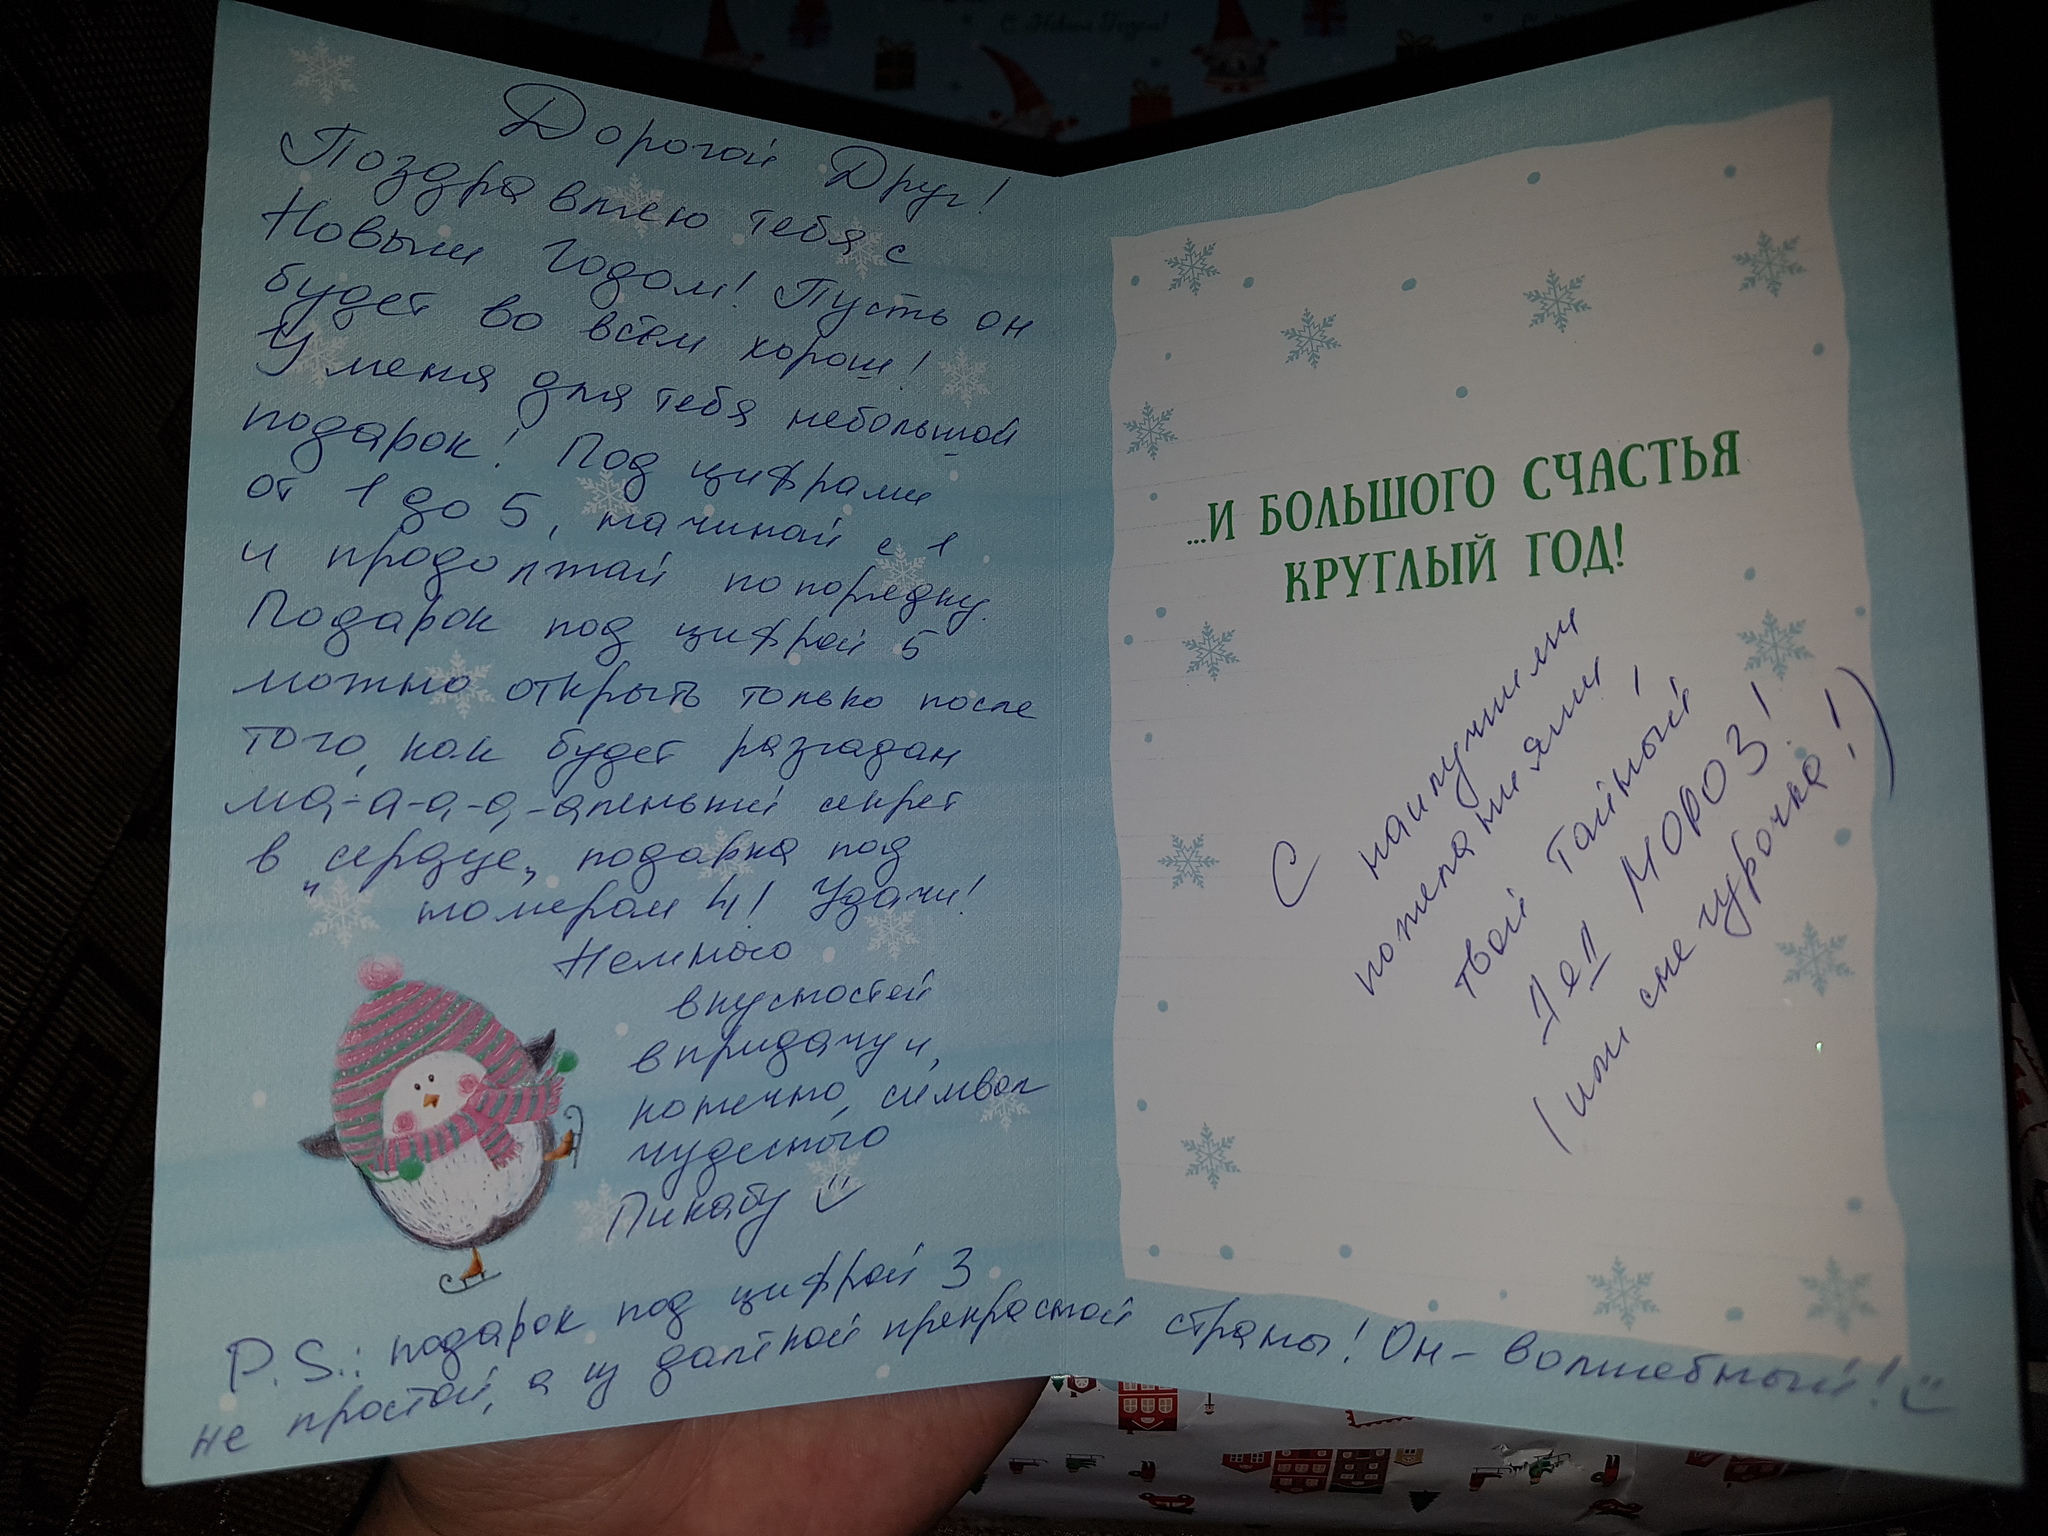 Дорогой Друг!
Поздравляю тебя с
Новым Годом! Пусть он
будет во всём хорош!
У меня для тебя небольшой
подарок! Под цифрами
от 1 до 5, начинай с 1
и продолжай по порядку.
Подарок под цифрой 5
можно открыть только после
того, как будет разгадан
ма-а-а-а-аленький секрет
в "сердце" подарка под
номером 4! Удачи!
Немного
вкусностей
в придачу и,
конечно, символ
чудесного
Пикабу
P.S.: подарок под цифрой 3
не простой, а из далёкой прекрасной страны! Он - волшебный!
...И БОЛЬШОГО СЧАСТЬЯ
КРУГЛЫЙ ГОД!
С наилучшими
пожеланиями,
твой Тайный
Дед МОРОЗ!
(или снегурочка!)
С Новым Годом!